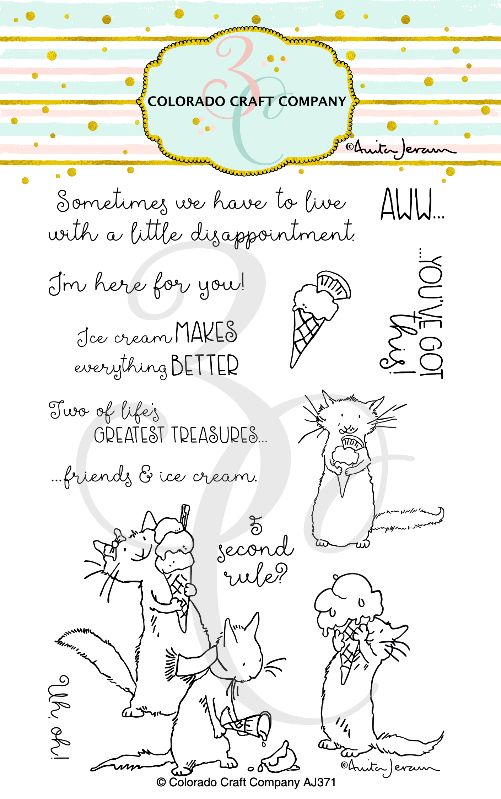 3C
COLORADO CRAFT COMPANY
©Anita Jeram
Sometimes we have to live
with a little disappointment.
AWW...
...YOU'VE GOT
this!
I'm here for you!
Ice cream MAKES
everything BETTER
Two of life's
GREATEST TREASURES...
...friends & ice cream.
5
second
rule?
Uh, oh!
©Anita Jeram
© Colorado Craft Company AJ371